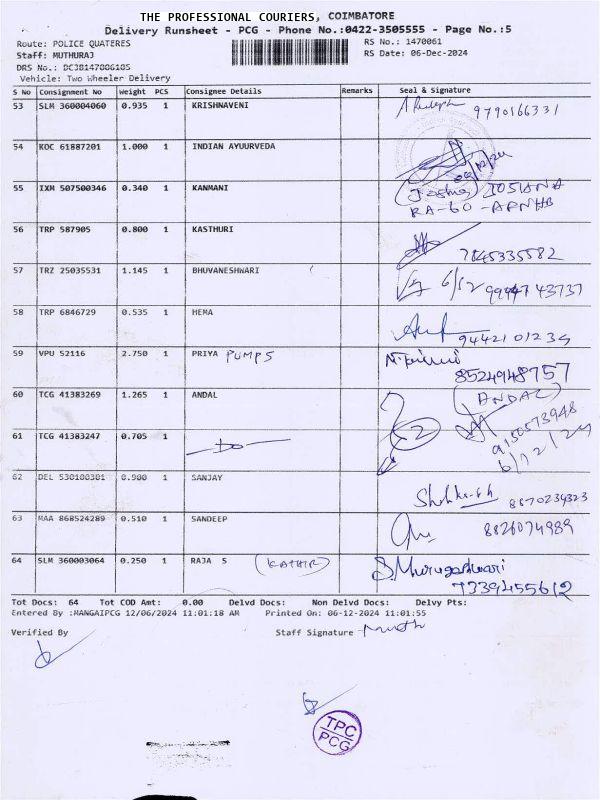 THE PROFESSIONAL COURIERS, COIMBATORE
Delivery Runsheet - PCG - Phone No.:0422-3505555 - Page No.:5
Route: POLICE QUATERES RS No.: 1470061
Staff: MUTHURAJ RS Date: 06-Dec-2024
DRS No.: DC38147086185
Vehicle: Two Wheeler Delivery
S No Consignment No Weight PCS Consignee Details Remarks Seal & Signature
53 SLM 360004060 0.935 1 KRISHNAVENI 9790166331
54 KOC 61887201 1.000 1 INDIAN AYUURVEDA
55 IXM 507500346 0.340 1 KANMANI Joshna JOSIANA
RA-60-APNHB
56 TRP 587905 0.800 1 KASTHURI 7845335582
57 TRZ 25035531 1.145 1 BHUVANESHWARI 6/12 99947 43737
58 TRP 6846729 0.535 1 HEMA 9442101234
59 VPU 52116 2.750 1 PRIYA PUMPS
8524948757
60 TCG 41383269 1.265 1 ANDAL (ANDAL)
9150573948
61 TCG 41383247 0.705 1 —Do— 2 6/12/24
62 DEL 530100301 0.900 1 SANJAY 8870234323
63 MAA 868524289 0.510 1 SANDEEP 8826074989
64 SLM 360003064 0.250 1 RAJA S (KATHIR) S. Murugeshwari
7339455612
Tot Docs: 64 Tot COD Amt: 0.00 Delvd Docs: Non Delvd Docs: Delvy Pts:
Entered By :MANGAIPCG 12/06/2024 11:01:18 AM Printed On: 06-12-2024 11:01:55
Verified By Staff Signature Muth
TPC
PCG